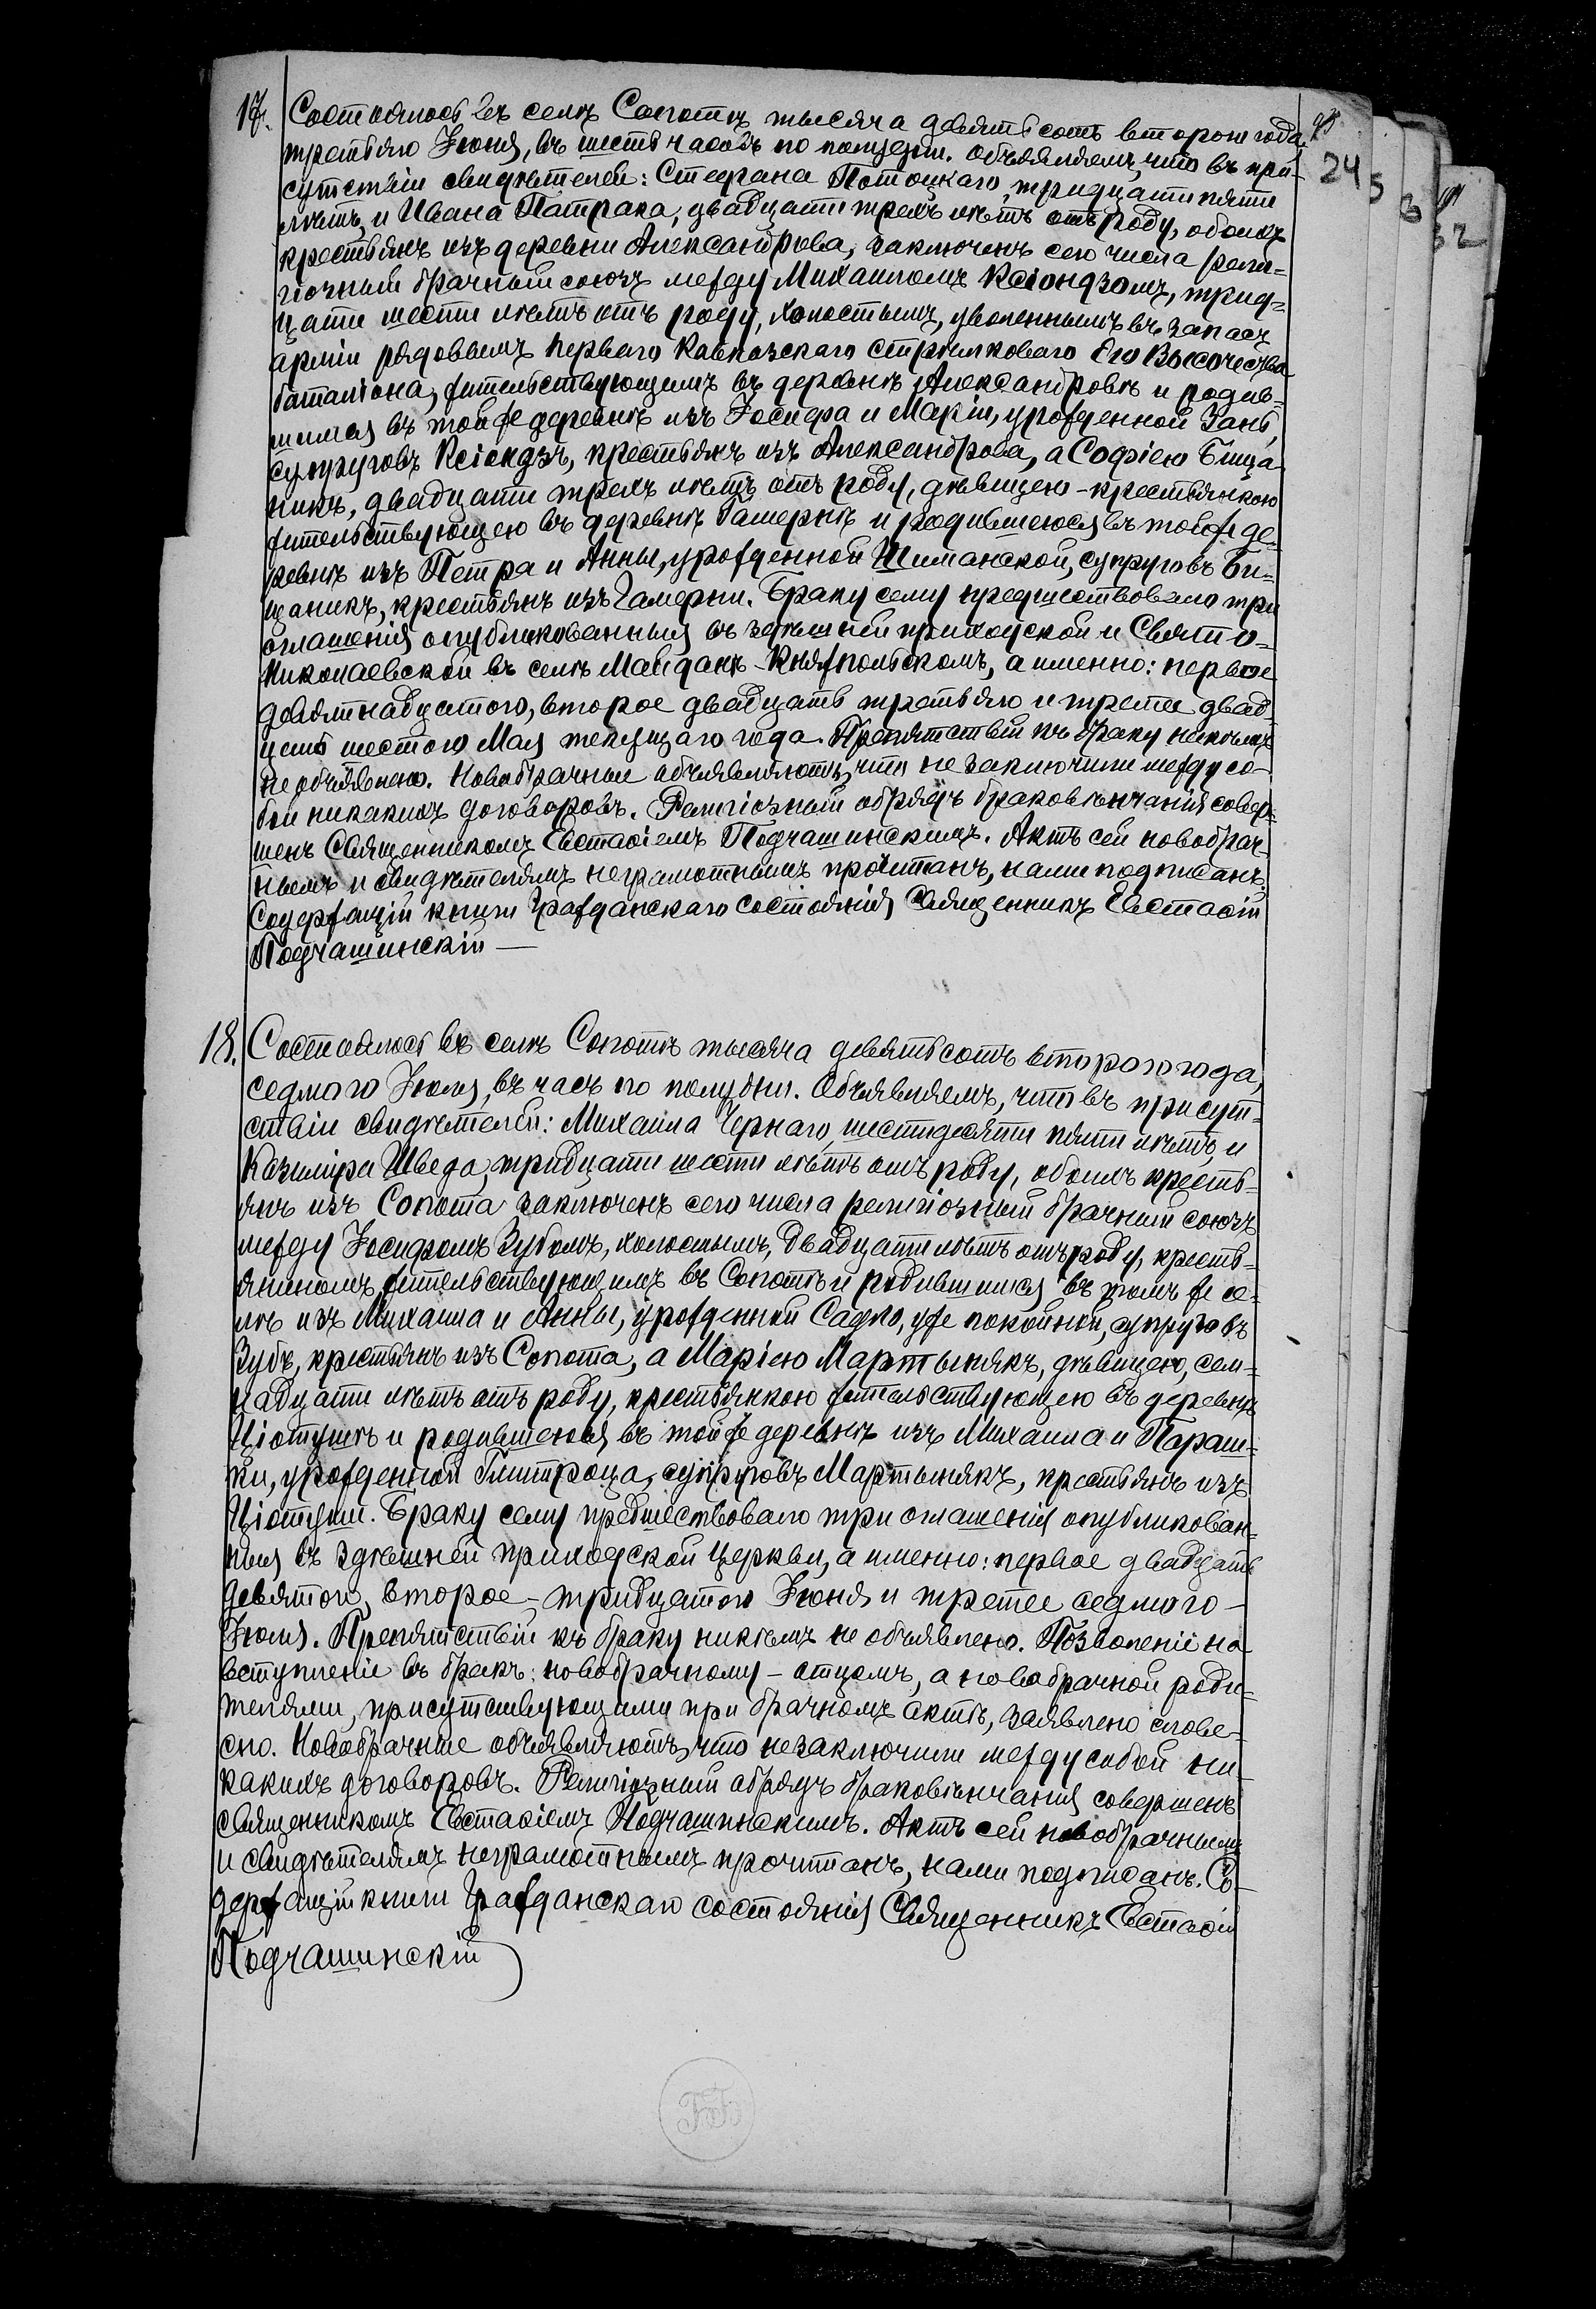 17. Состоялось въ селѣ Сопотѣ тысяча девятьсотъ второго года,
третьяго Іюня, въ шесть часовъ по полудни. Объявляемъ, что въ при-
сутствіи свидѣтелей: Стефана Потоцкаго, тридцати пяти
лѣтъ, и Ивана Патрака, двадцати трехъ лѣтъ отъ роду, обоихъ
крестьянъ изъ деревни Александрова, заключенъ сего числа рели-
гіозный брачный союзъ между Михаиломъ Ксіондзомъ, трид-
цати шести лѣтъ отъ роду, холостымъ, уволеннымъ въ запасъ
арміи рядовымъ перваго Кавказскаго стрѣлковаго Его Высочества
баталіона, жительствующимъ въ деревнѣ Александровѣ и родив-
шимся въ той же деревнѣ изъ Іосифа и Маріи, урожденной Зань,
супруговъ Ксіондзъ, крестьянъ изъ Александрова, а Софіею Бища-
никъ, двадцати трехъ лѣтъ отъ роду, дѣвицею - крестьянкою
жительствующею въ деревнѣ Гамернѣ и родившеюся въ той же де-
ревнѣ изъ Петра и Анны, урожденной Шиманской, супруговъ Би-
щаникъ, крестьянъ изъ Гамерни. Браку сему предшествовало три
оглашенія опубликованныя въ здѣшней приходской и Свято-
Николаевской въ селѣ Майданѣ-Княжпольскомъ, а именно: первое
девятнадцатого, второе двадцать третьяго и третье двад-
цать шестого Мая текущаго года. Препятствій къ браку никѣмъ
не объявлено. Новобрачные объявляютъ, что не заключили между со-
бой никакихъ договоровъ. Религіозный обрядъ браковѣнчанія совер-
шенъ Священникомъ Евстаѳіемъ Подчашинскимъ. Актъ сей новобрач-
нымъ и свидѣтелямъ неграмотнымъ прочитанъ, нами подписанъ.
Содержащій книги гражданскаго состоянія Священникъ Евстаѳій
Подчашинскій —
24
18. Состоялось въ селѣ Сопотѣ тысяча девятьсотъ второго года,
седмого Іюля, въ часъ по полудни. Объявляемъ, что въ присут-
ствіи свидѣтелей: Михаила Чернаго, шестидесяти пяти лѣтъ, и
Казиміра Шведа, тридцати шести лѣтъ отъ роду, обоихъ кресть-
янъ изъ Сопота заключенъ сего числа религіозный брачный союзъ
между Іосифомъ Зубомъ, холостымъ, двадцати лѣтъ отъ роду, кресть-
яниномъ жительствующимъ въ Сопотѣ и родившимся въ томъ же се-
лѣ изъ Михаила и Анны, урожденной Садло, уже покойной, супруговъ
Зубъ, крестьянъ изъ Сопота, а Маріею Мартынякъ, дѣвицею, сем-
надцати лѣтъ отъ роду, крестьянкою жительствующею въ деревнѣ
Ціотушѣ и родившеюся въ той же деревнѣ изъ Михаила и Параш-
ки, урожденной супруговъ Мартынякъ, крестьянъ изъ
Ціотуши. Браку сему предшествовало три оглашенія опубликован-
ныя въ здѣшней приходской церкви, а именно: первое двадцать
девятого, второе - тридцатого Іюня и третье седмого -
Іюля. Препятствій къ браку никѣмъ не объявлено. Позволеніе на
вступленіе въ бракъ: новобрачному - отцомъ, а новобрачной роди-
телями, присутствующими при брачномъ актѣ, заявлено слове-
сно. Новобрачные объявляютъ, что не заключили между собой ни-
какихъ договоровъ. Религіозный обрядъ браковѣнчанія совершенъ
священникомъ Евстаѳіемъ Подчашинскимъ. Актъ сей новобрачнымъ
и свидѣтелямъ неграмотнымъ прочитанъ, нами подписанъ. Со-
держащій книги гражданскаго состоянія Священникъ Евстаѳій
Подчашинскій